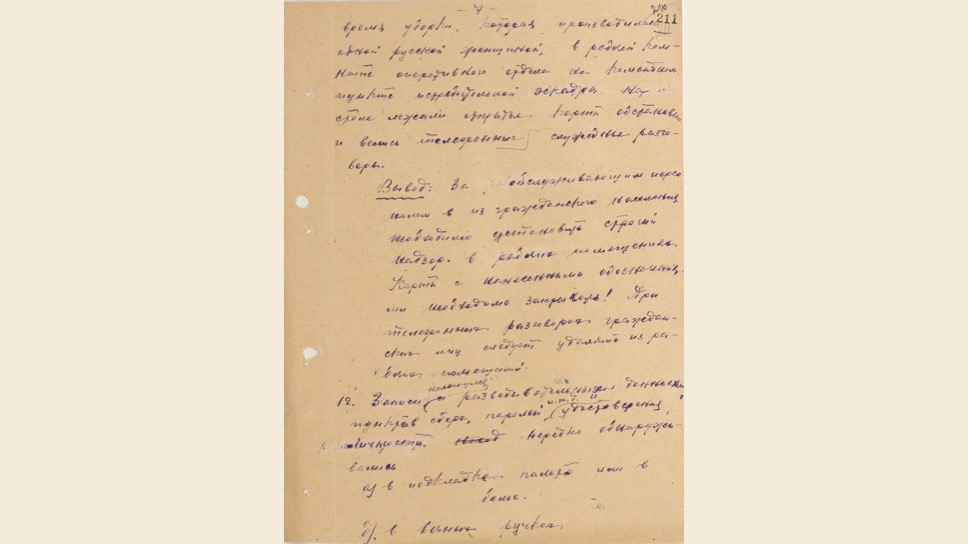 - 7 -
211
время уборки, которая производилась
одной русской женщиной, в рабочей ком-
нате оперативного отдела на командном
пункте истребительной эскадры на
столе лежали открытые карты обстановки
и велись телефонные служебные разго-
воры.
Вывод: За обслуживающим персо-
налом из гражданского населения
необходимо установить строгий
надзор в рабочих помещениях.
Карты с нанесенными обозначени-
ми необходимо закрывать! При
телефонных разговорах граждан-
ских лиц следует удалять из ра-
бочих помещений.
12. Записи разведывательных данных
пунктов сбора, паролей, и т.д. и удостоверения
личности нередко обнаружи-
вались
а) в подкладках пальто или в
белье.
б) в полых ручках